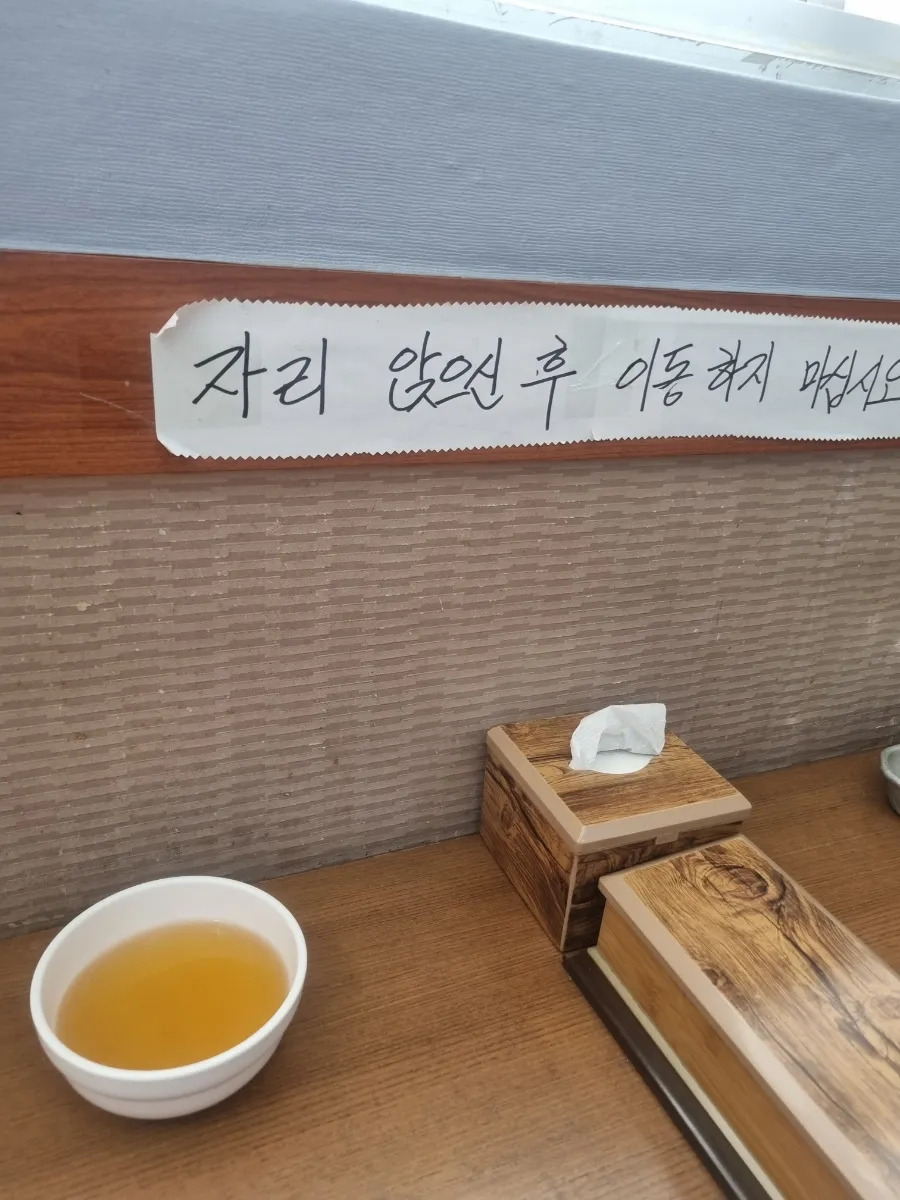 자리 앉으신 후 이동하지 마십시오